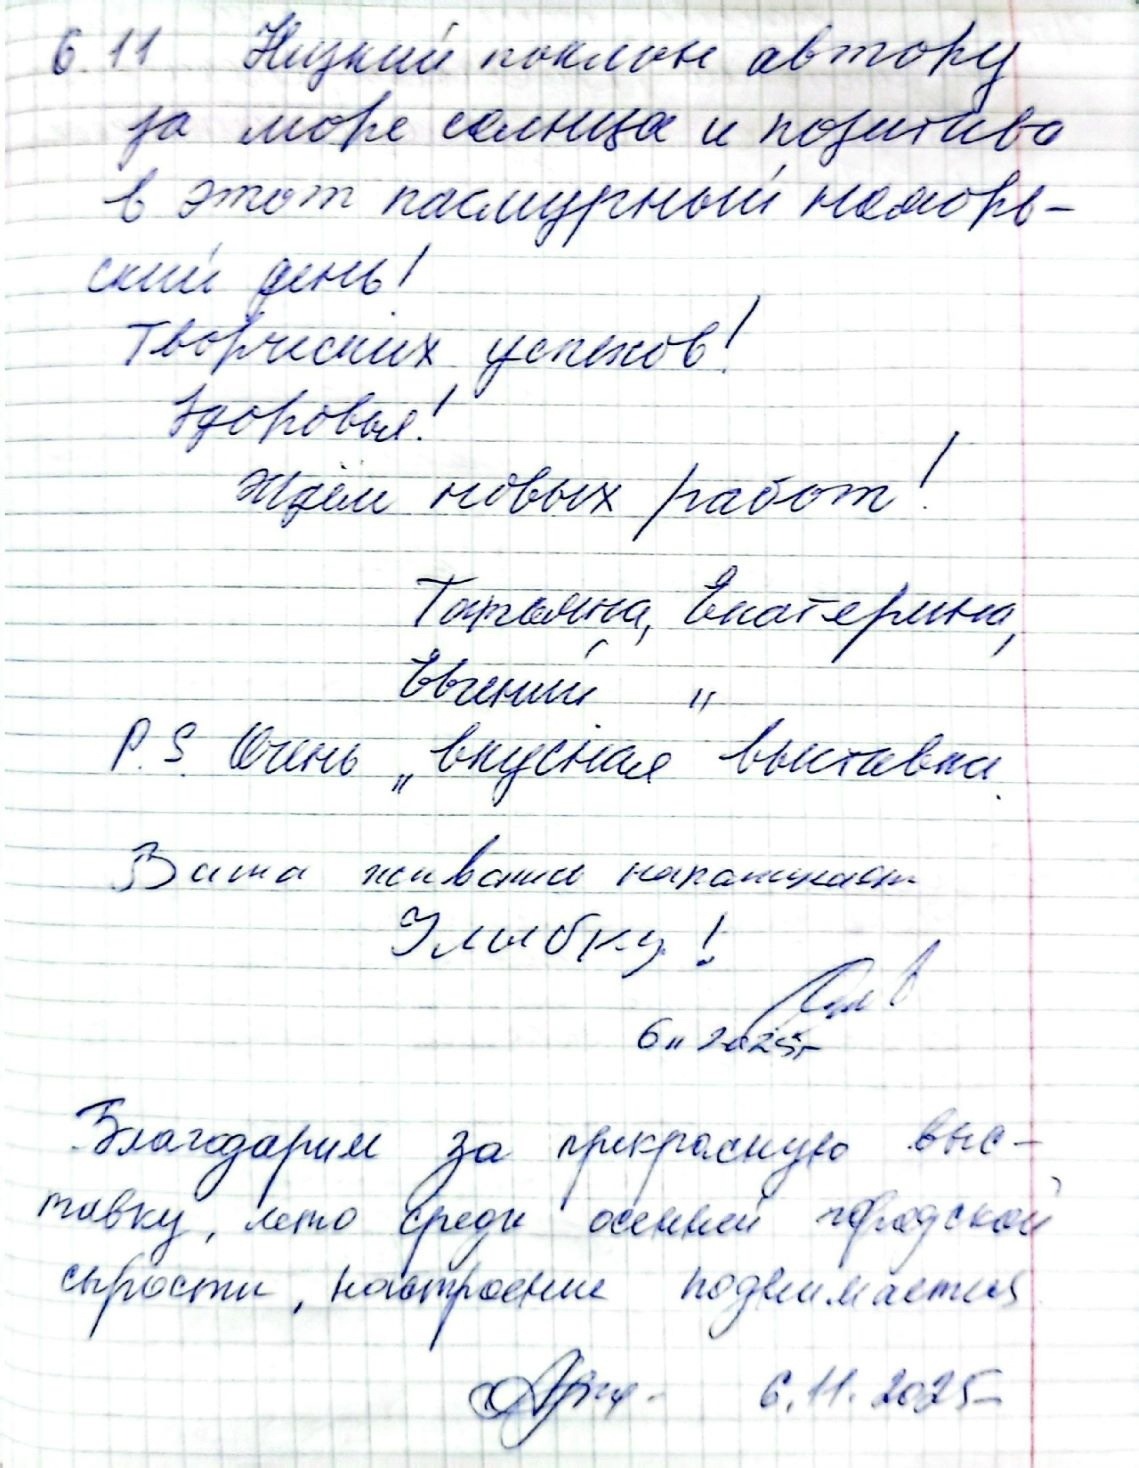 6.11 Низкий поклон автору
за море солнца и позитива
в этот пасмурный ноябрь-
ский день!
Творческих успехов!
Здоровья!
Ждём новых работ!
Татьяна, Екатерина,
Евгений "
P.S. Очень „вкусная выставка.
Ваша живопись напоминает
Улыбку!
6 11 2025г
Благодарим за прекрасную выс-
тавку, лето среди осенней городской
сырости, настроение поднимается
6.11.2025